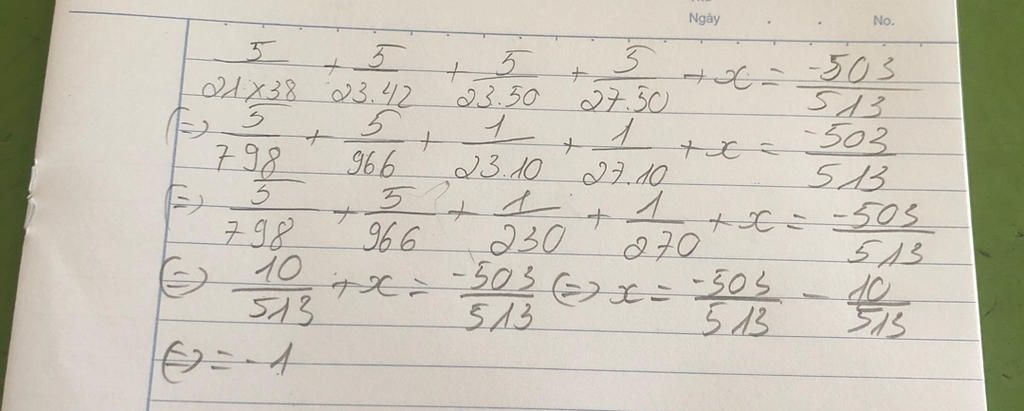 Ngày . . No.
5/(21×38) + 5/(23.42) + 5/(23.50) + 5/(27.50) + x = -503/513
(=) 5/798 + 5/966 + 1/(23.10) + 1/(27.10) + x = -503/513
(=) 5/798 + 5/966 + 1/230 + 1/270 + x = -503/513
(=) 10/513 + x = -503/513 (=) x = -503/513 - 10/513
(=) = -1